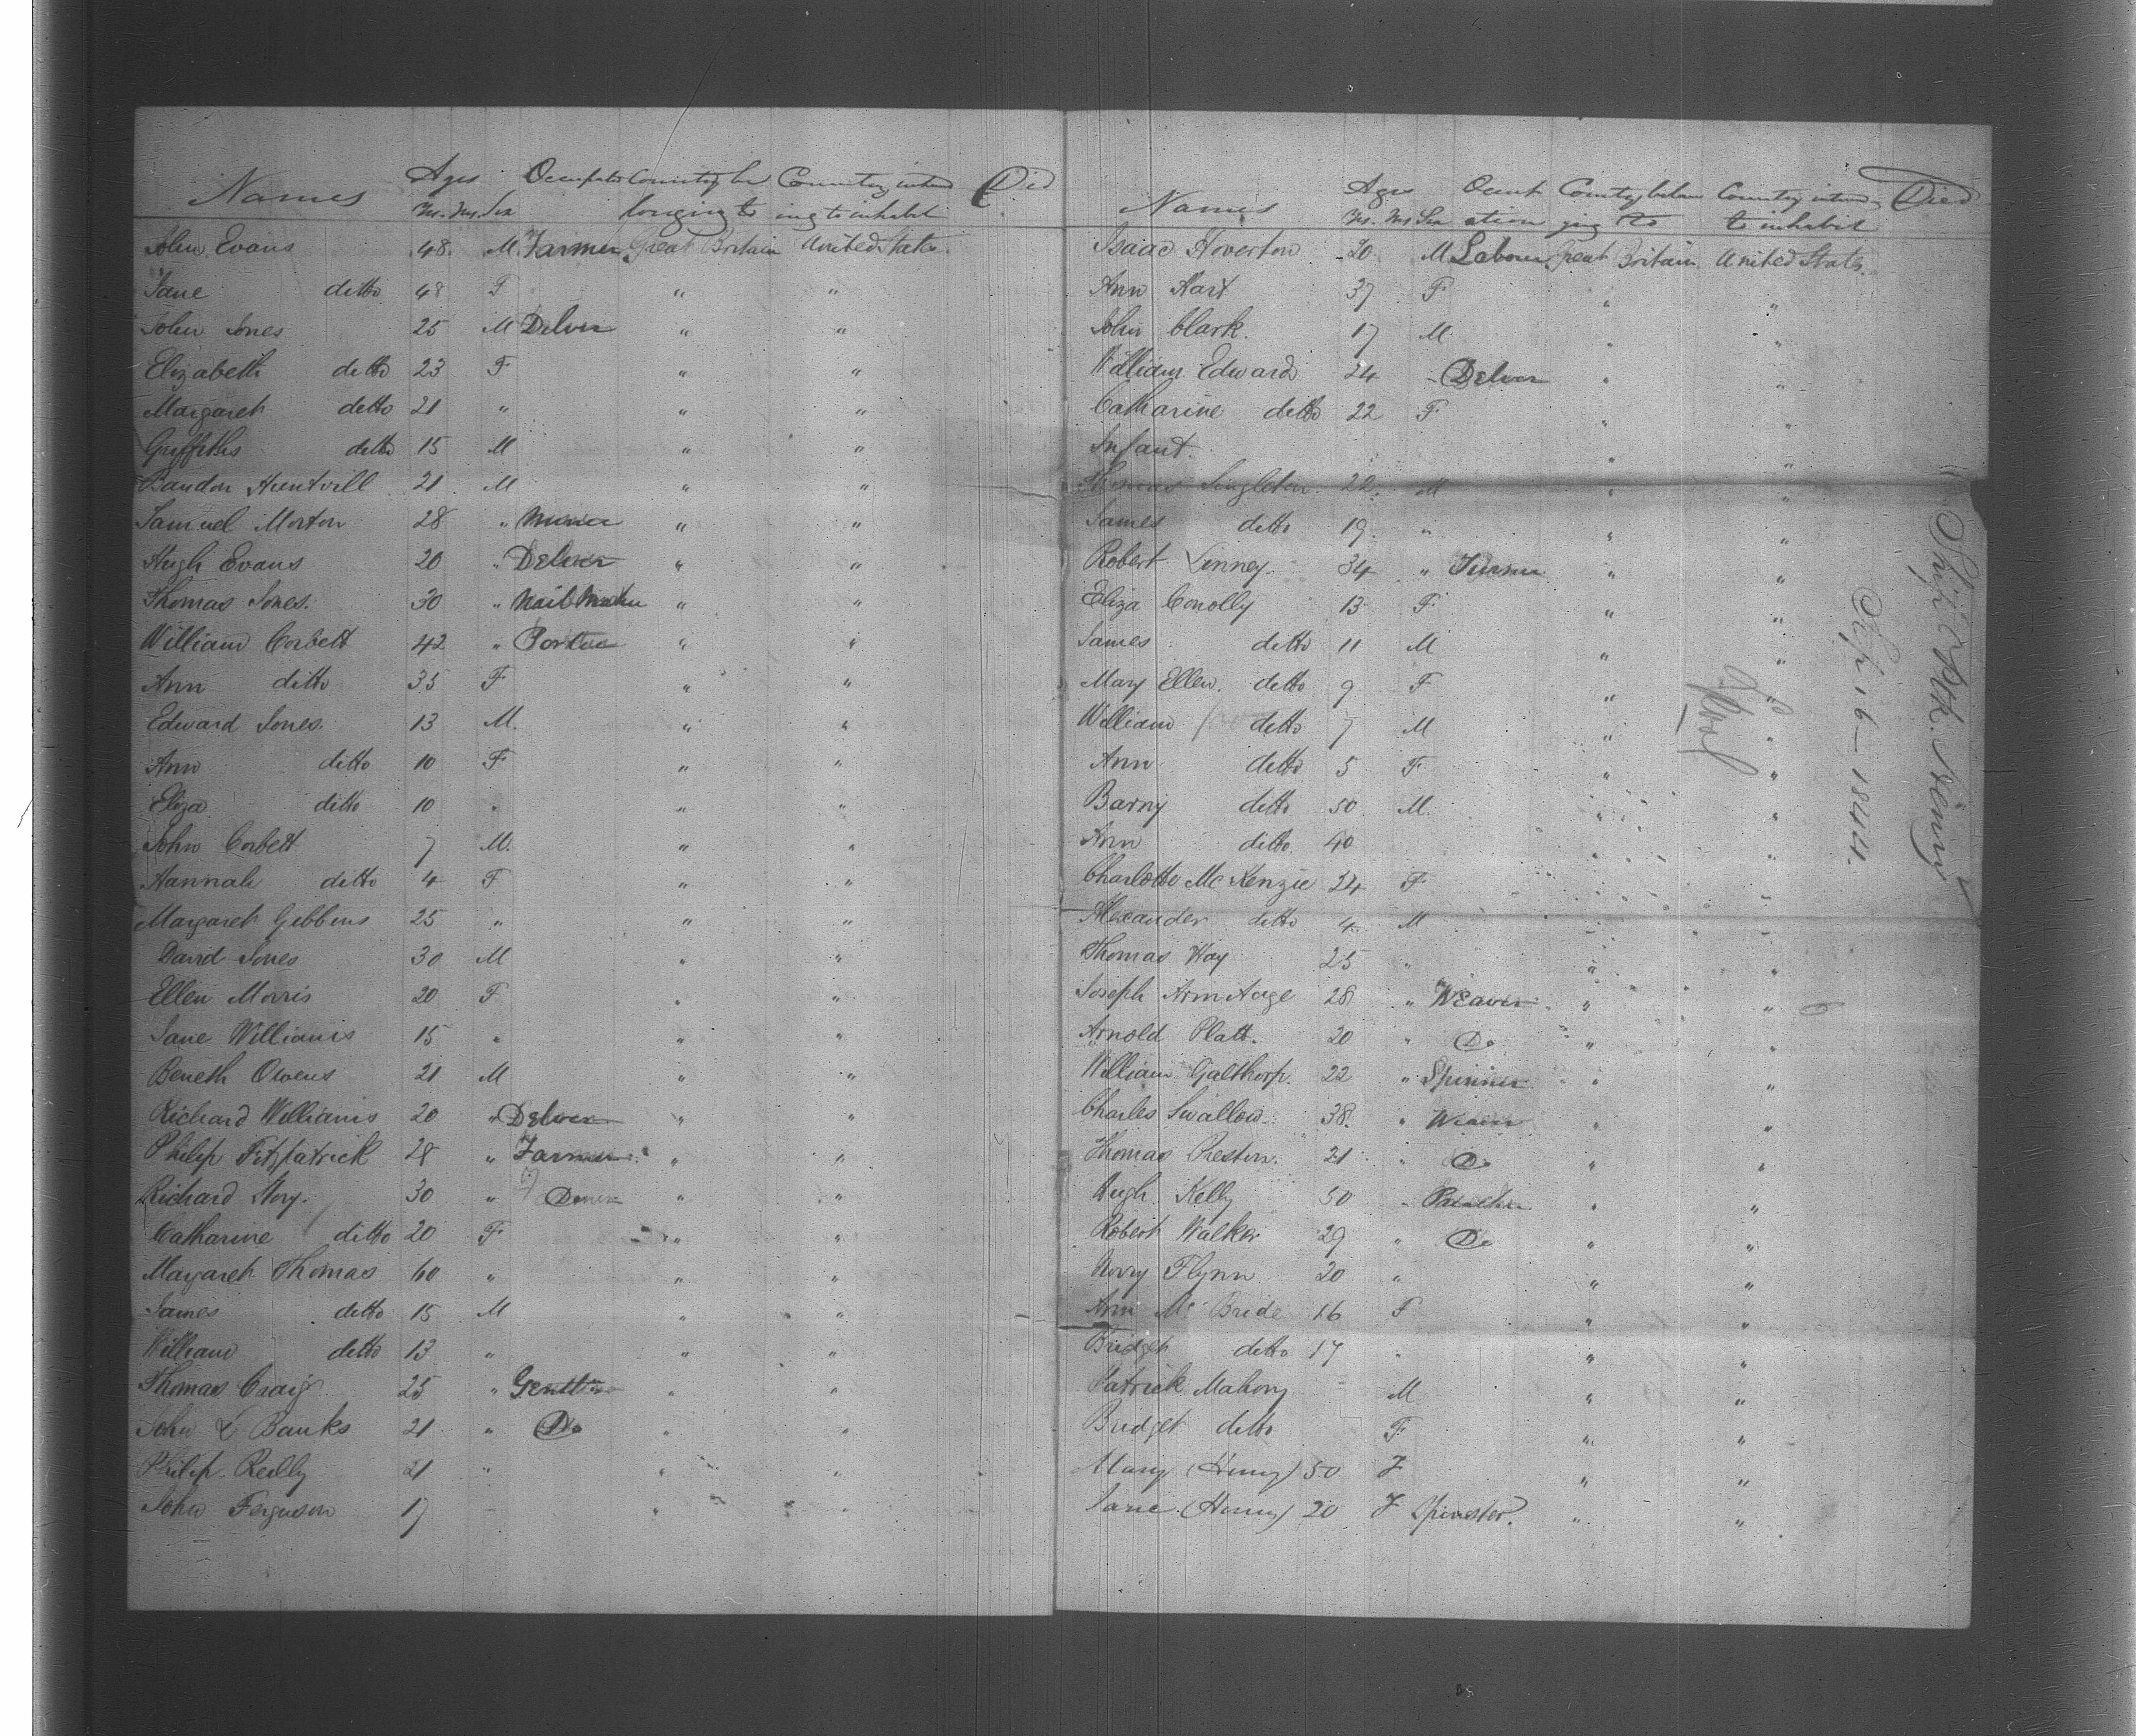 Names Ages Occupatn Country be Country intend Did
Yrs. Ms. Sex longing to ing to inhabit
John Evans 48. M. Farmer Great Britain United States
Jane ditto 48 F " "
John Jones 25 M Delver " "
Elizabeth ditto 23 F " "
Margaret ditto 21 " " "
Griffiths ditto 15 M " "
21 M " "
Samuel Morton 28 " Miner " "
Hugh Evans 20 " Delver " "
Thomas Jones. 30 " Nail Maker " "
William Corbett 42 " Porter " "
Ann ditto 35 F " "
Edward Jones. 13 M. " "
Ann ditto 10 F " "
Eliza ditto 10 " " "
John Corbett 7 M. " "
Hannah ditto 4 F " "
Margaret Gebbens 25 " " "
David Jones 30 M " "
Ellen Morris 20 F " "
Jane Williams 15 " " "
Beneth Owens 21 M " "
Richard Williams 20 " Delver " "
Philip Fitzpatrick 28 " Farmer " "
Richard 30 " " "
Catharine ditto 20 F " "
Margaret Thomas 60 " " "
James ditto 15 M " "
William ditto 13 " " "
Thomas Craig 25 " " "
John & Banks 21 " Do " "
Philip Reilly 21 " " "
John Ferguson 17 " "
Names Ages Occup Country belon Country intend Died
Yrs. Ms Sex ation ging to to inhabit
Isaac Hoverton 20 M Labour Great Britain United States
Ann Hart 37 F " "
John Clark. 17 M " "
William Edwards 24 " Delver " "
Catharine ditto 22 F " "
Infant. " "
Thomas Singleton 22 M " "
James ditto 19 " " "
Robert 34 " " "
Eliza Conolly 13 F " "
James ditto 11 M " "
Mary Ellen. ditto 9 F " "
William ditto 7 M " "
Ann ditto 5 F " "
Barny ditto 50 M. " "
Ann ditto 40 " "
Charlotte McKenzie 24 F " "
Alexander ditto 4 M " "
Thomas Way 25 " " "
Joseph Armitage 28 " Weaver " "
Arnold Platt. 20 " Do " "
William Galthorp. 22 " Spinner " "
Charles Swallow 38. " Weaver " "
Thomas Preston. 21 " Do " "
Hugh Kelly 50 " " "
Robert Walker 29 " Do " "
Flynn 20 " " "
Ann McBride 16 F " "
Bridget ditto 17 " " "
Patrick Mahony M " "
Bridget ditto F " "
Mary (Henry) 50 F " "
Jane (Henry) 20 F Spinster. " "
L'pool
Sep. 16 - 1844.